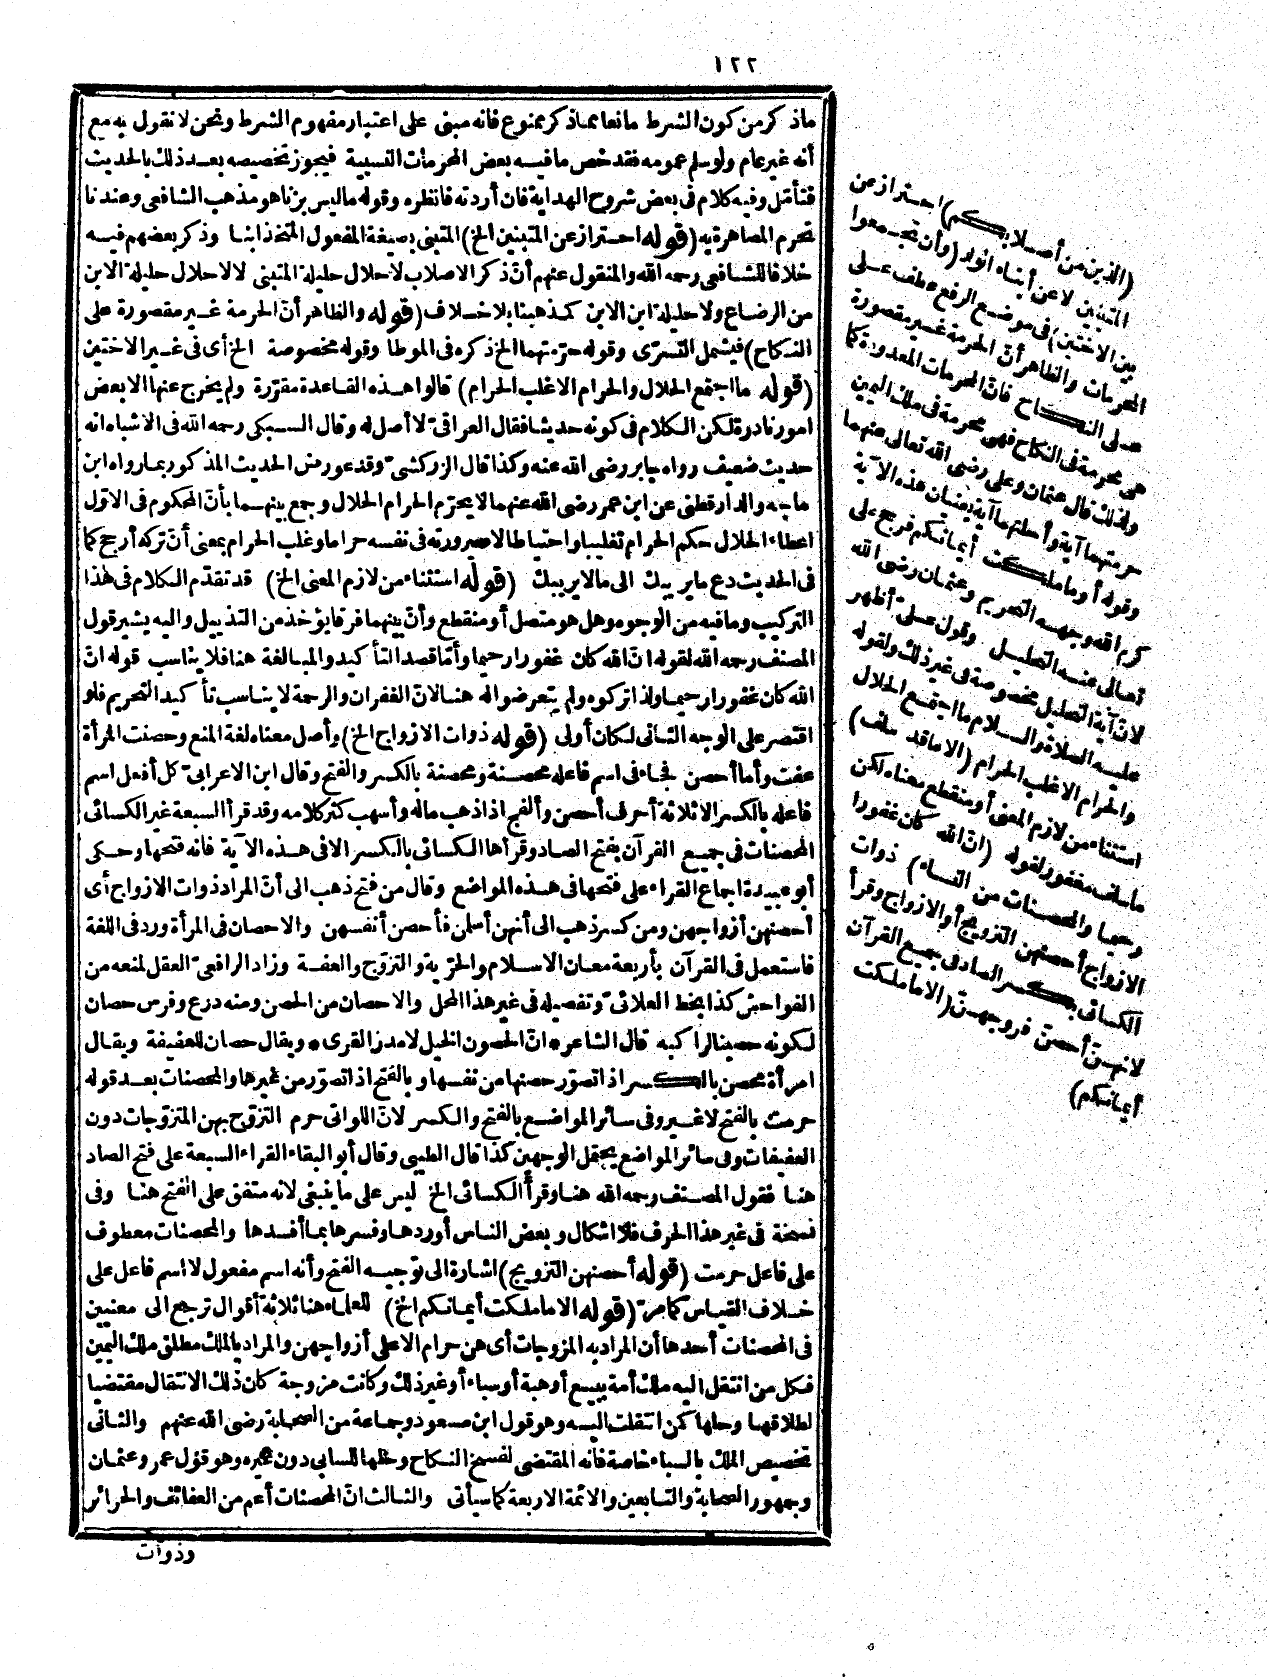 ١٢٢
ماذكر من كون الشرط مانعا مماذكر ممنوع فانه مبنى على اعتبار مفهوم الشرط ونحن لا نقول به مع
أنه غير عام ولوسلم عمومه فقد خص ما فيه بعض المحرمات النسبية فيجوز تخصيصه بعد ذلك بالحديث
فتأمل وفيه كلام فى بعض شروح الهداية فان أردته فانظره وقوله ما ليس بزناهو مذهب الشافعى وعندنا
تحرم المصاهرة به (قوله احتراز عن المتبنين الخ) المتبنى بصيغة المفعول المتخذ ابنا وذكر بعضهم فيه
خلافا للشافعى رحمه الله والمنقول عنهم أنّ ذكر الاصلاب لاحلال حليلة المتبنى لالاحلال حليلة الابن
من الرضاع ولا حليلة ابن الابن كمذهبنا بلا خلاف (قوله والظاهر أنّ الحرمة غير مقصورة على
النكاح) فيشمل التسرّى وقوله حرّمتهما الخ ذكره فى الموطا وقوله مخصوصة الخ أى فى غير الاختين
(قوله ما اجتمع الحلال والحرام الاغلب الحرام) قالوا هذه القاعدة مقرّرة ولم يخرج عنها الا بعض
امور نادرة لكن الكلام فى كونه حديثا فقال العراقىّ لا أصل له وقال السبكى رحمه الله فى الاشباه انه
حديث ضعيف رواه جابر رضى الله عنه وكذا قال الزركشىّ وقد عورض الحديث المذكور بما رواه ابن
ماجه والدارقطنى عن ابن عمر رضى الله عنهما لا يحرّم الحرام الحلال وجمع بينهما بأنّ المحكوم فى الاوّل
اعطاء الحلال حكم الحرام تغليبا واحتياطا لاصيرورته فى نفسه حراما وغلب الحرام بمعنى أنّ تركه أرجح كما
فى الحديث دع ما يريبك الى ما لا يريبك (قوله استثناء من لازم المعنى الخ) قد تقدّم الكلام فى هذا
التركيب وما فيه من الوجوه وهل هو متصل أو منقطع وأنّ بينهما فرقا يؤخذ من التذييل واليه يشير قول
المصنف رحمه الله لقوله انّ الله كان غفورا رحيما وأمّا قصد التأكيد والمبالغة هنا فلا يناسب قوله انّ
الله كان غفورا رحيما ولذا تركوه ولم يتعرضوا له هنا لانّ الغفران والرحمة لا يناسب تأكيد التحريم فلو
اقتصر على الوجه الثانى لكان أولى (قوله ذوات الازواج الخ) وأصل معناه لغة المنع وحصنت المرأة
عفت وأما أحصن فجاء فى اسم فاعله محصنة ومحصنة بالكسر والفتح وقال ابن الاعرابىّ كل أفعل اسم
فاعله بالكسر الا ثلاثة أحرف أحصن وألفج اذا ذهب ماله وأسهب كثر كلامه وقد قرأ السبعة غير الكسائى
المحصنات فى جميع القرآن بفتح الصاد وقرأها الكسائى بالكسر الا فى هذه الآية فانه فتحها وحكى
أبو عبيدة اجماع القراء على فتحها فى هذه المواضع وقال من فتح ذهب الى أنّ المراد ذوات الازواج أى
أحصنهن أزواجهن ومن كسر ذهب الى أنهن أسلمن فأحصن أنفسهن والاحصان فى المرأة ورد فى اللغة
فاستعمل فى القرآن بأربعة معان الاسلام والحرّية والتزوّج والعفة وزاد الرافعىّ العقل لمنعه من
الفواحش كذا بخط العلائىّ وتفصيله فى غير هذا المحل والاحصان من الحصن ومنه درع وفرس حصان
لكونه حصينا لراكبه قال الشاعر * انّ الحصون الخيل لا مدر القرى * ويقال حصان للعفيفة ويقال
امرأة محصن بالكسر اذا تصوّر حصنها من نفسها وبالفتح اذا تصوّر من غيرها والمحصنات بعد قوله
حرمت بالفتح لا غير وفى سائر المواضع بالفتح والكسر لانّ اللواتى حرم التزوّج بهن المتزوّجات دون
العفيفات وفى سائر المواضع يحتمل الوجهين كذا قال الطيبى وقال أبو البقاء القراء السبعة على فتح الصاد
هنا فقول المصنف رحمه الله هنا وقرأ الكسائى الخ ليس على ما ينبغى لانه متفق على الفتح هنا وفى
نسخة فى غير هذا الحرف فلا اشكال وبعض الناس أوردها وفسرها بما أفسدها والمحصنات معطوف
على فاعل حرمت (قوله أحصنهن التزويج) اشارة الى توجيه الفتح وأنه اسم مفعول لا اسم فاعل على
خلاف القياس كما مرّ (قوله الا ما ملكت أيمانكم الخ) للعلماء هنا ثلاثة أقوال ترجع الى معنيين
فى المحصنات أحدها أن المراد به المزوجات أى هن حرام الا على أزواجهن والمراد بالملك مطلق ملك اليمين
فكل من انتقل اليه ملك أمة ببيع أو هبة أو سباء أو غير ذلك وكانت مزوجة كان ذلك الانتقال مقتضيا
لطلاقها وحلها لمن انتقلت اليه وهو قول ابن مسعود وجماعة من الصحابة رضى الله عنهم والثانى
تخصيص الملك بالسباء خاصة فانه المقتضى لفسخ النكاح وحلها للسابى دون غيره وهو قول عمر وعثمان
وجمهور الصحابة والتابعين والائمة الاربعة كما سيأتى والثالث انّ المحصنات أعم من العفائف والحرائر
وذوات
(الذين من أصلابكم) احتراز عن
المتبنين لا عن أبناء الولد (وأن تجمعوا
بين الاختين) فى موضع الرفع عطف على
المحرمات والظاهر أنّ الحرمة غير مقصورة
على النكاح فانّ المحرمات المعدودة كما
هى محرمة فى النكاح فهى محرمة فى ملك اليمين
ولذلك قال عثمان وعلى رضى الله تعالى عنهما
حرمتهما آية وأحلتهما آية يعنيان هذه الآية
وقوله أو ما ملكت أيمانكم فرجح على
كرم الله وجهه التحريم وعثمان رضى الله
تعالى عنه التحليل وقول علىّ أظهر
لانّ آية التحليل مخصوصة فى غير ذلك ولقوله
عليه الصلاة والسلام ما اجتمع الحلال
والحرام الا غلب الحرام (الا ما قد سلف)
استثناء من لازم المعنى أو منقطع معناه لكن
ما سلف مغفور لقوله (انّ الله كان غفورا
رحيما والمحصنات من النساء) ذوات
الازواج أحصنهن التزويج أو الازواج وقرأ
الكسائى بكسر الصاد فى جميع القرآن
لانهن أحصنّ فروجهنّ (الا ما ملكت
أيمانكم)